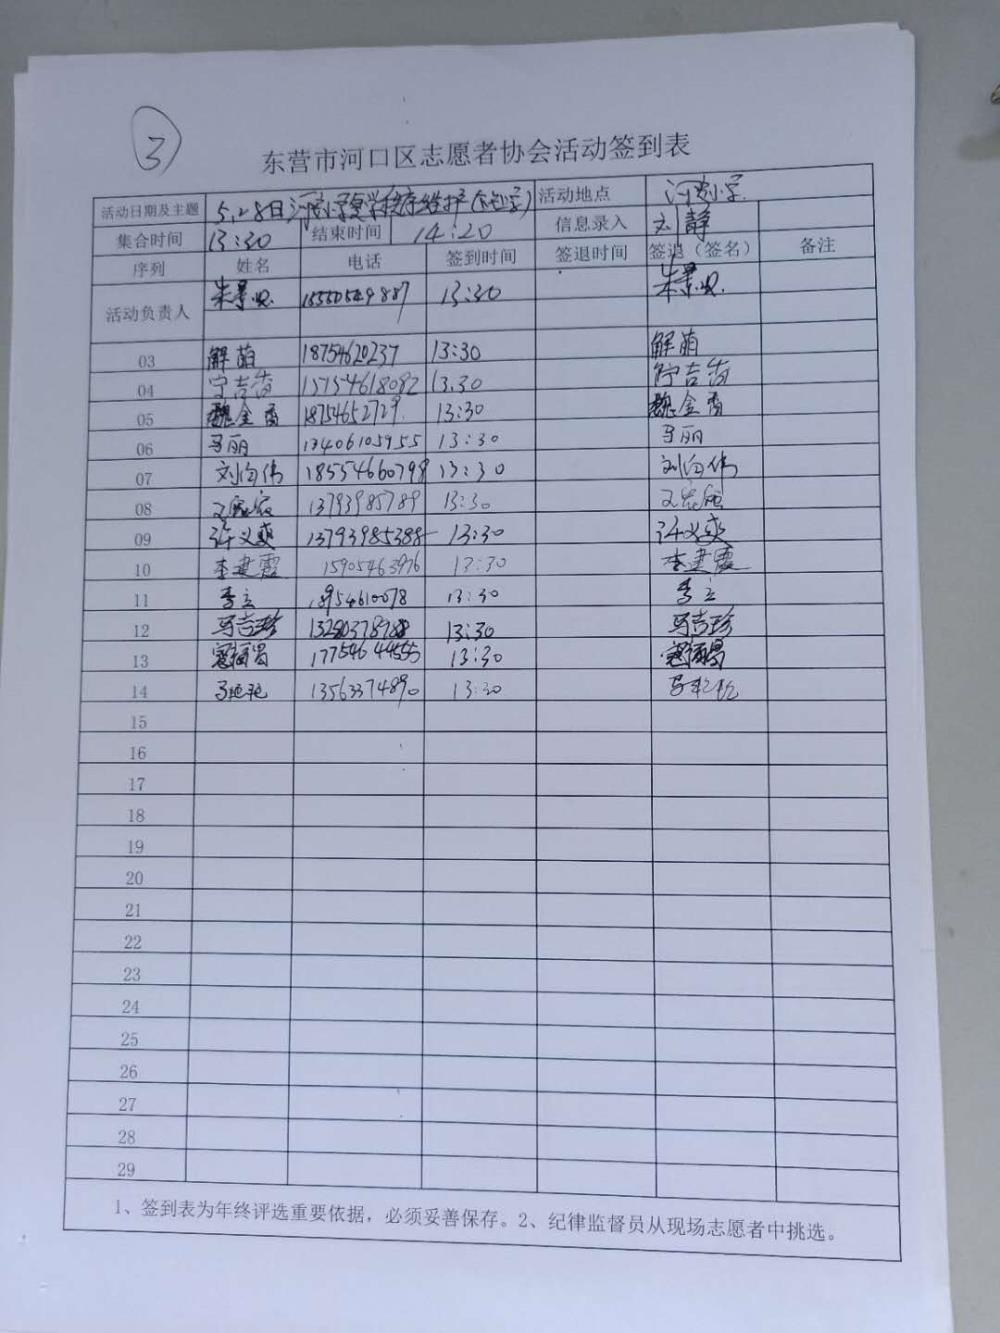 3
东营市河口区志愿者协会活动签到表
活动日期及主题 5.28日 复学秩序维护 活动地点
集合时间 13:30 结束时间 14:20 信息录入 刘静
序列 姓名 电话 签到时间 签退时间 签退（签名） 备注
活动负责人 朱景 13:30 朱景
03 解萌 18754620237 13:30 解萌
04 宁吉 15754618092 13.30 宁吉
05 魏金香 18754652729 13:30 魏金香
06 马丽 13406105955 13:30 马丽
07 刘向伟 18554660798 13:30 刘向伟
08 13793985789 13:30
09 许义爽 13793985388 13:30 许义爽
10 李建霞 15905463976 13:30 李建霞
11 李立 18954610078 13:30 李立
12 马吉珍 13:30 马吉珍
13 寇福昌 17754644555 13:30 寇福昌
14 马 13563374890 13:30 马
15
16
17
18
19
20
21
22
23
24
25
26
27
28
29
1、签到表为年终评选重要依据，必须妥善保存。2、纪律监督员从现场志愿者中挑选。